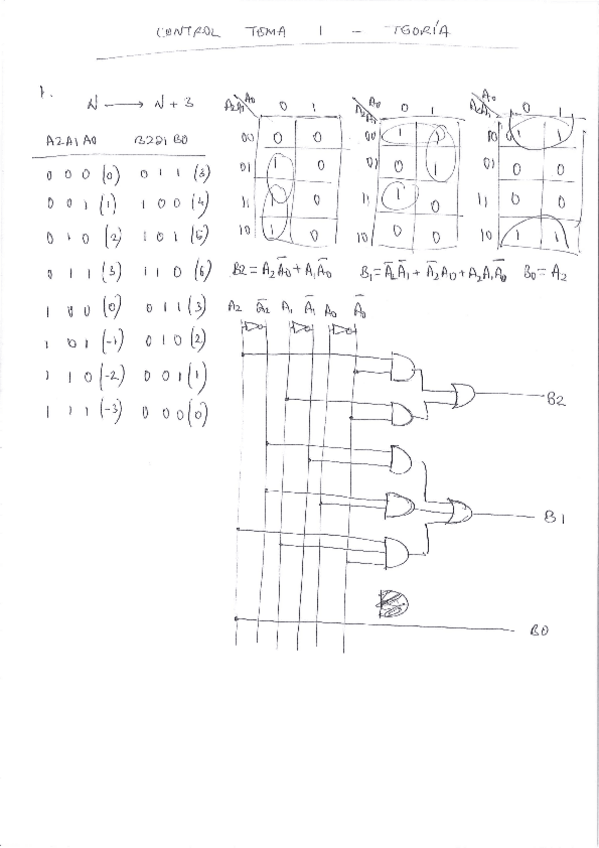 CONTROL TEMA 1 - TEORÍA
1.
N → N + 3
A2A1A0 B2B1B0
0 0 0 (0) 0 1 1 (3)
0 0 1 (1) 1 0 0 (4)
0 1 0 (2) 1 0 1 (5)
0 1 1 (3) 1 1 0 (6)
1 0 0 (0) 0 1 1 (3)
1 0 1 (-1) 0 1 0 (2)
1 1 0 (-2) 0 0 1 (1)
1 1 1 (-3) 0 0 0 (0)
A2A1 A0 0 1
00 0 0
01 1 0
11 1 0
10 1 0
B2 = A2A̅0 + A1A̅0
A2A1 A0 0 1
00 1 1
01 0 1
11 1 0
10 0 0
B1 = A̅2A̅1 + A̅2A0 + A2A1A̅0
A2A1 A0 0 1
00 1 1
01 0 0
11 0 0
10 1 1
B0 = A2
A2 A̅2 A1 A̅1 A0 A̅0
B2
B1
B0